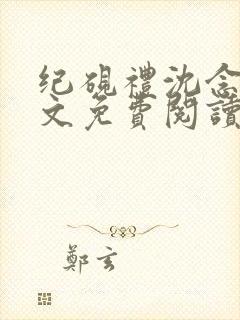 纪硯禮沈念
文免費閱讀
鄭玄